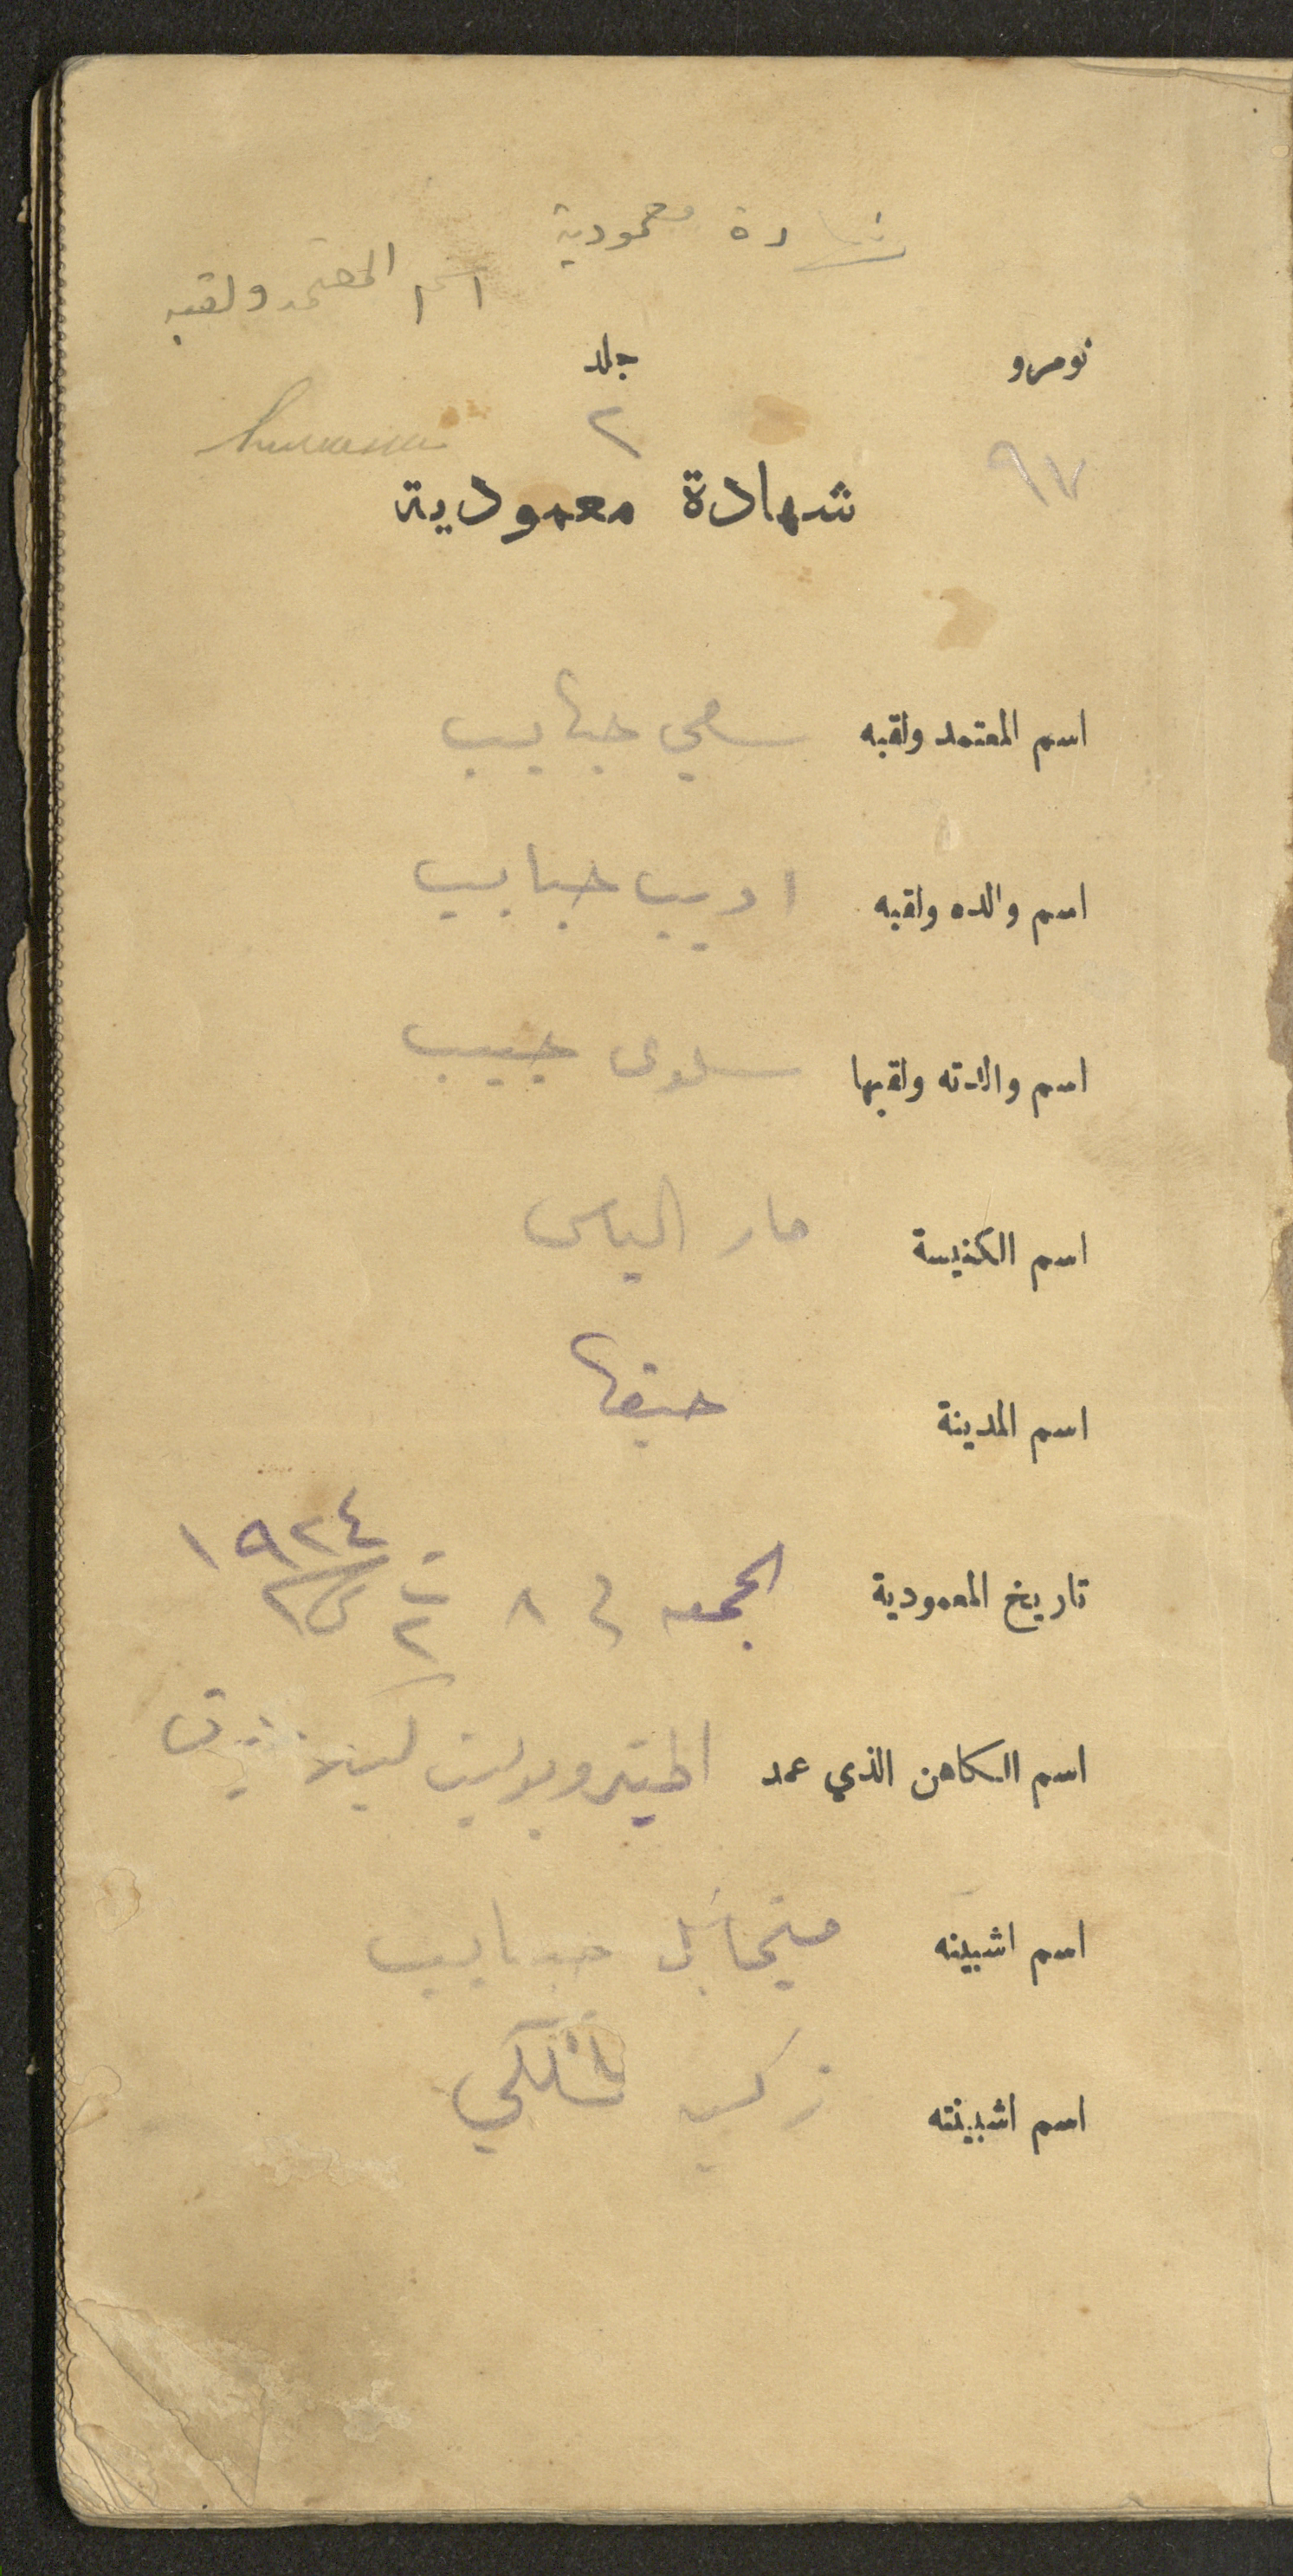 شهادة معمودية
اسم المعتمد ولقبه
نومرو جلد
٩٧ ٢
شهادة معمودية
اسم المعتمد ولقبه سامي حبايب
اسم والده ولقبه اديب حبايب
اسم والدته ولقبها سلوى حبيب
اسم الكنيسة مار الياس
اسم المدينة حيفا
تاريخ المعمودية الجمعه في ٨ ت٢ سنة ١٩٢٤
اسم الكاهن الذي عمد المتروبوليت
اسم اشبينه ميخائيل حبايب
اسم اشبينته زكيه